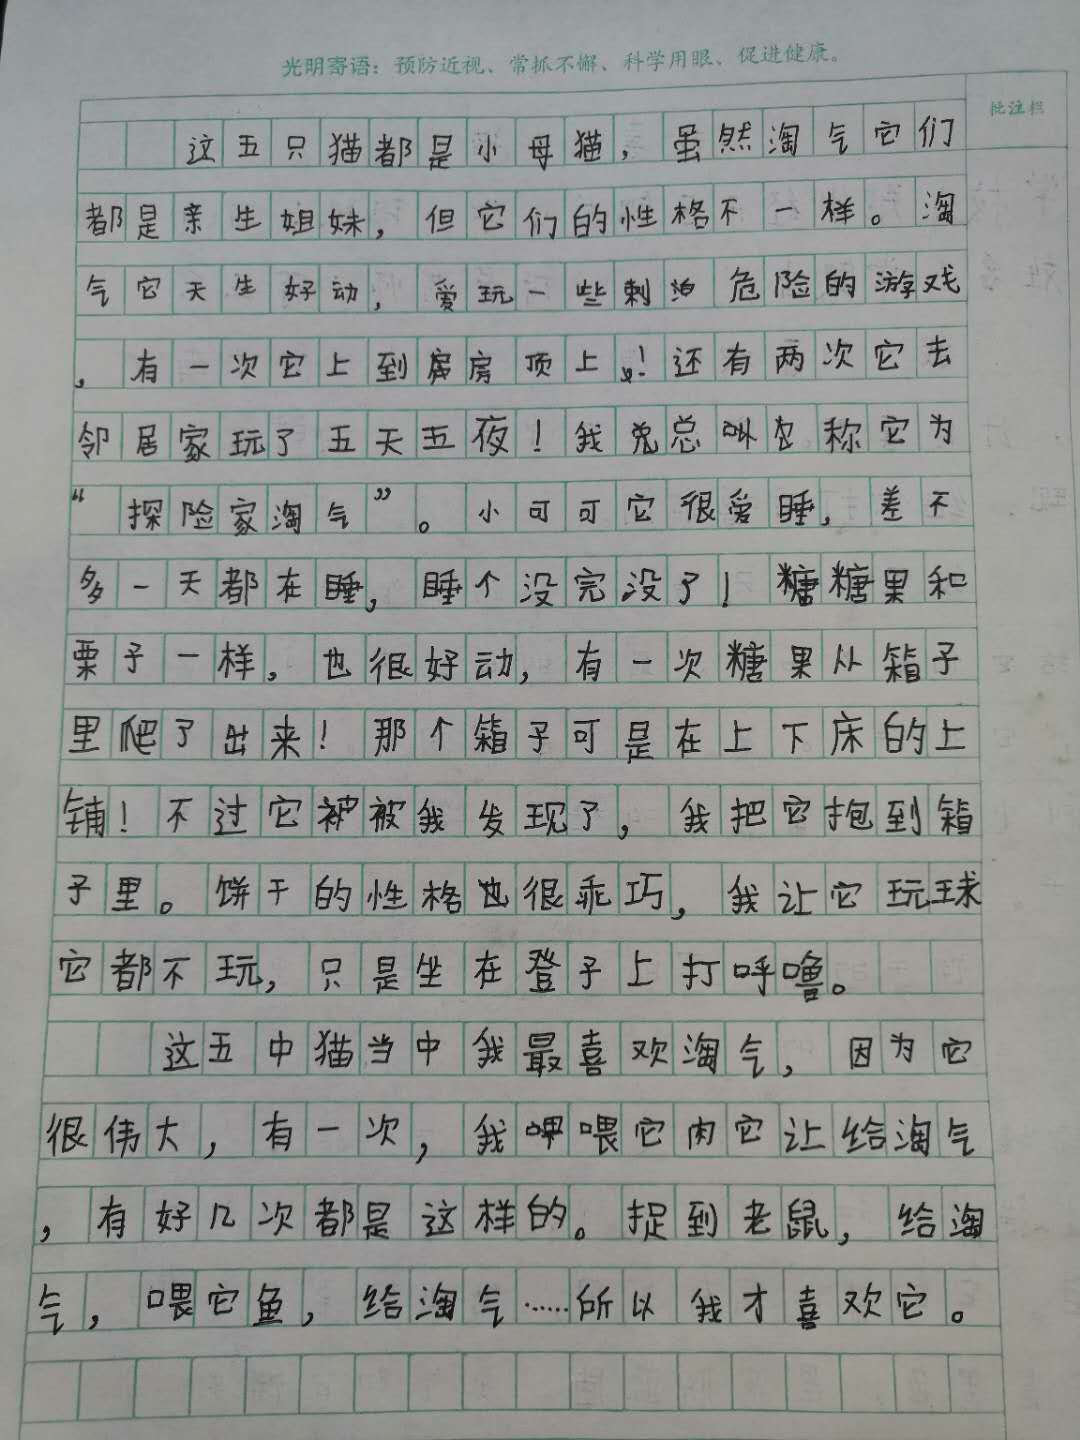 光明寄语：预防近视、常抓不懈、科学用眼、促进健康。
批注栏
这五只猫都是小母猫，虽然淘气它们
都是亲生姐妹，但它们的性格不一样。淘
气它天生好动，爱玩一些刺泊危险的游戏
，有一次它上到房房顶上！还有两次它去
邻居家玩了五天五夜！我总叫它称它为
“探险家淘气”。小可可它很爱睡，差不
多一天都在睡，睡个没完没了！糖糖果和
栗子一样，也很好动，有一次糖果从箱子
里爬了出来！那个箱子可是在上下床的上
铺！不过它被被我发现了，我把它抱到箱
子里。饼干的性格也很乖巧，我让它玩球
它都不玩，只是坐在登子上打呼噜。
这五中猫当中我最喜欢淘气，因为它
很伟大，有一次，我喂它肉它让给淘气
，有好几次都是这样的。捉到老鼠，给淘
气，喂它鱼，给淘气……所以我才喜欢它。